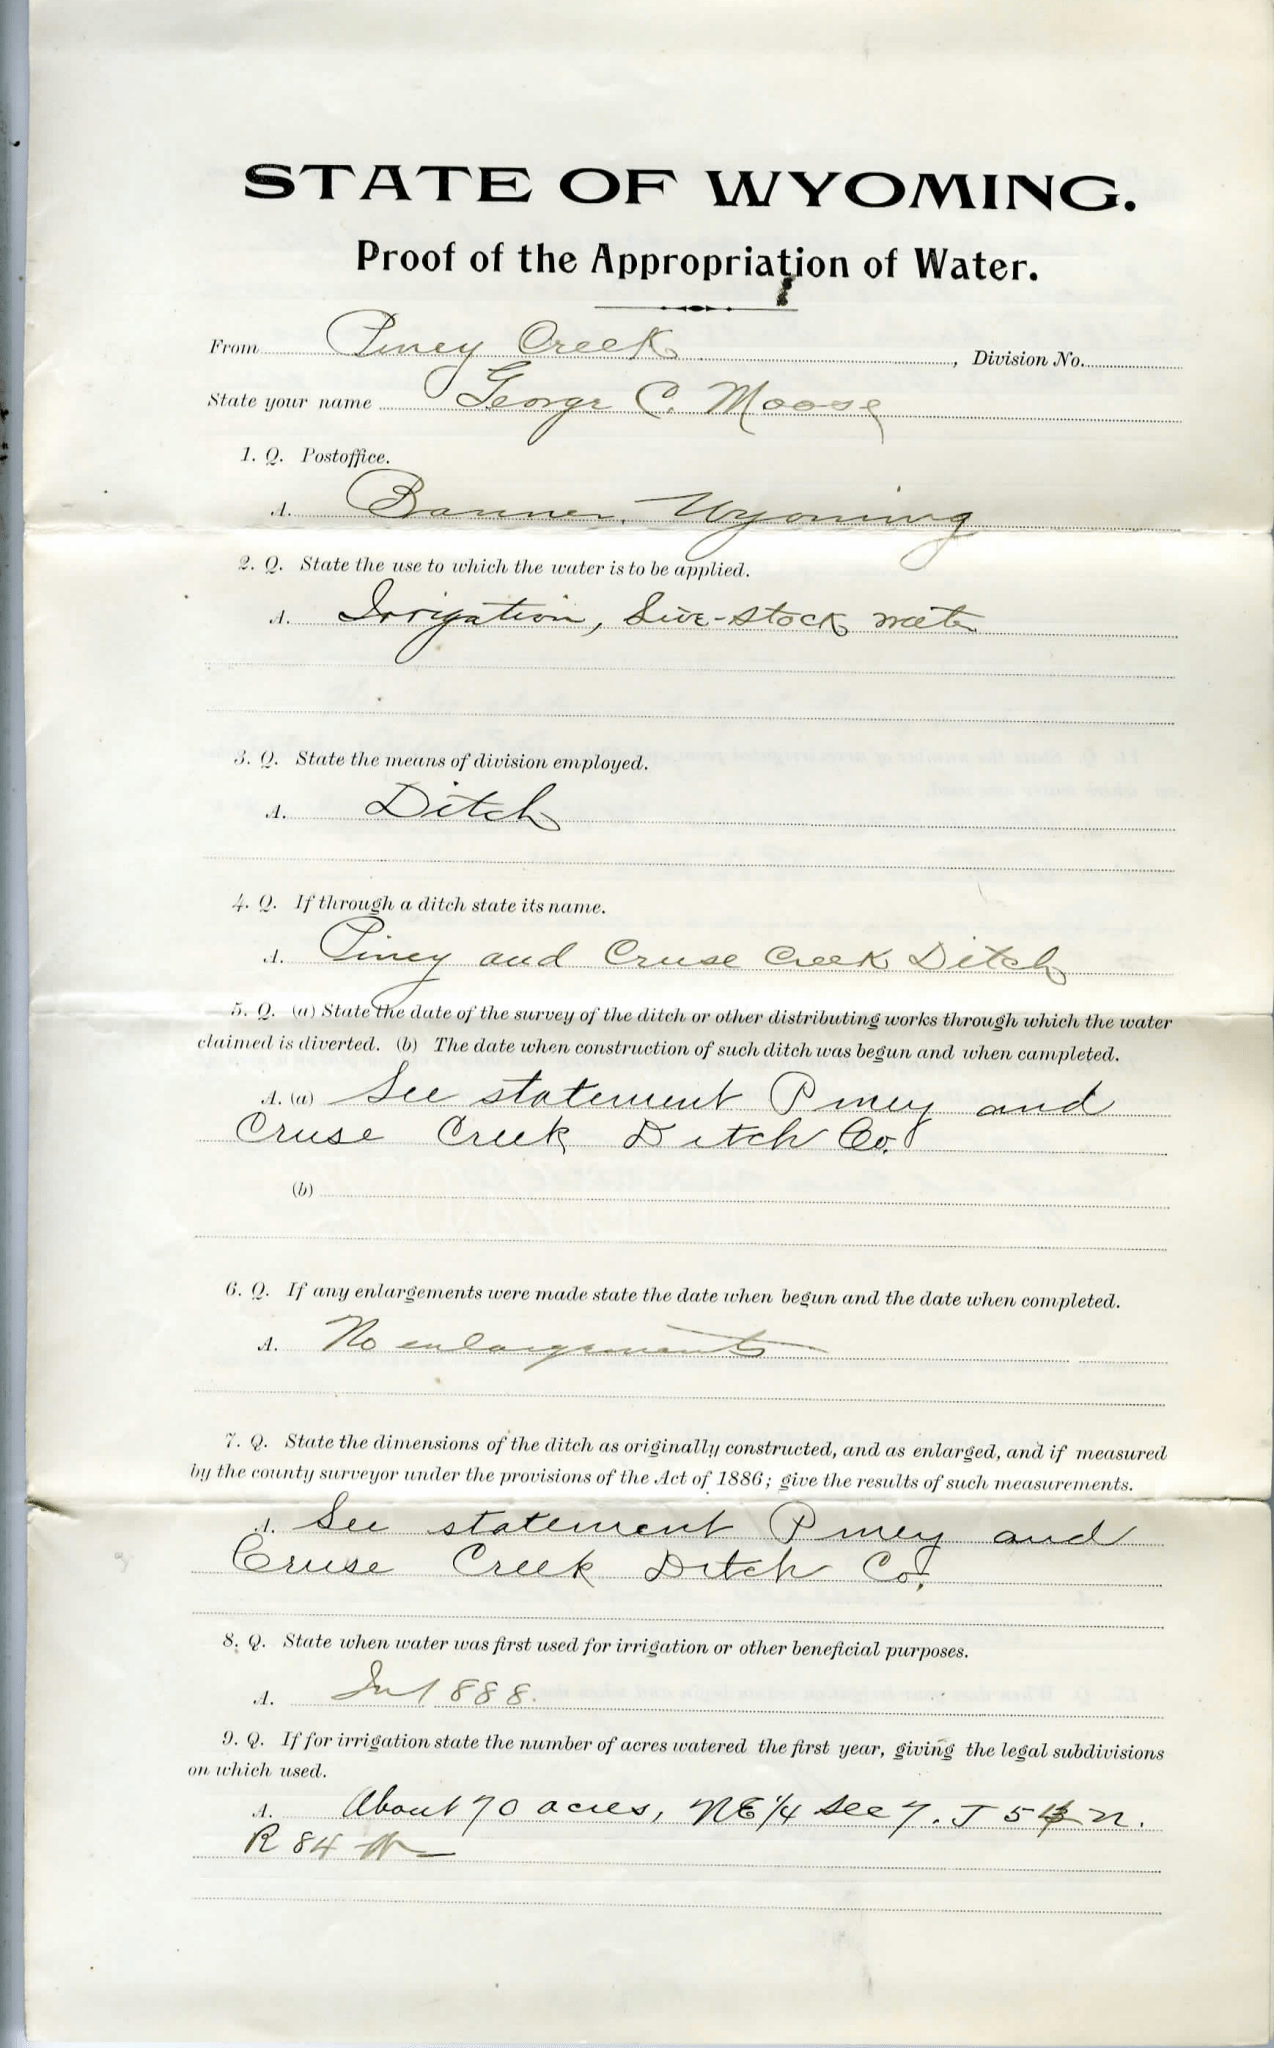 STATE OF WYOMING.
Proof of the Appropriation of Water.
From Piney Creek, Division No.
State your name George C. Moose
1. Q. Postoffice.
A. Banner, Wyoming
2. Q. State the use to which the water is to be applied.
A. Irrigation, Live-stock water
3. Q. State the means of division employed.
A. Ditch
4. Q. If through a ditch state its name.
A. Piney and Cruse Creek Ditch
5. Q. (a) State the date of the survey of the ditch or other distributing works through which the water
claimed is diverted. (b) The date when construction of such ditch was begun and when campleted.
A. (a) See statement Piney and
Cruse Creek Ditch Co.
(b)
6. Q. If any enlargements were made state the date when begun and the date when completed.
A. No enlargements
7. Q. State the dimensions of the ditch as originally constructed, and as enlarged, and if measured
by the county surveyor under the provisions of the Act of 1886; give the results of such measurements.
A. See statement Piney and
Cruse Creek Ditch Co.
8. Q. State when water was first used for irrigation or other beneficial purposes.
A. In 1888.
9. Q. If for irrigation state the number of acres watered the first year, giving the legal subdivisions
on which used.
A. About 70 acres, NE 1/4 Sec 7. T N.
R 84 W